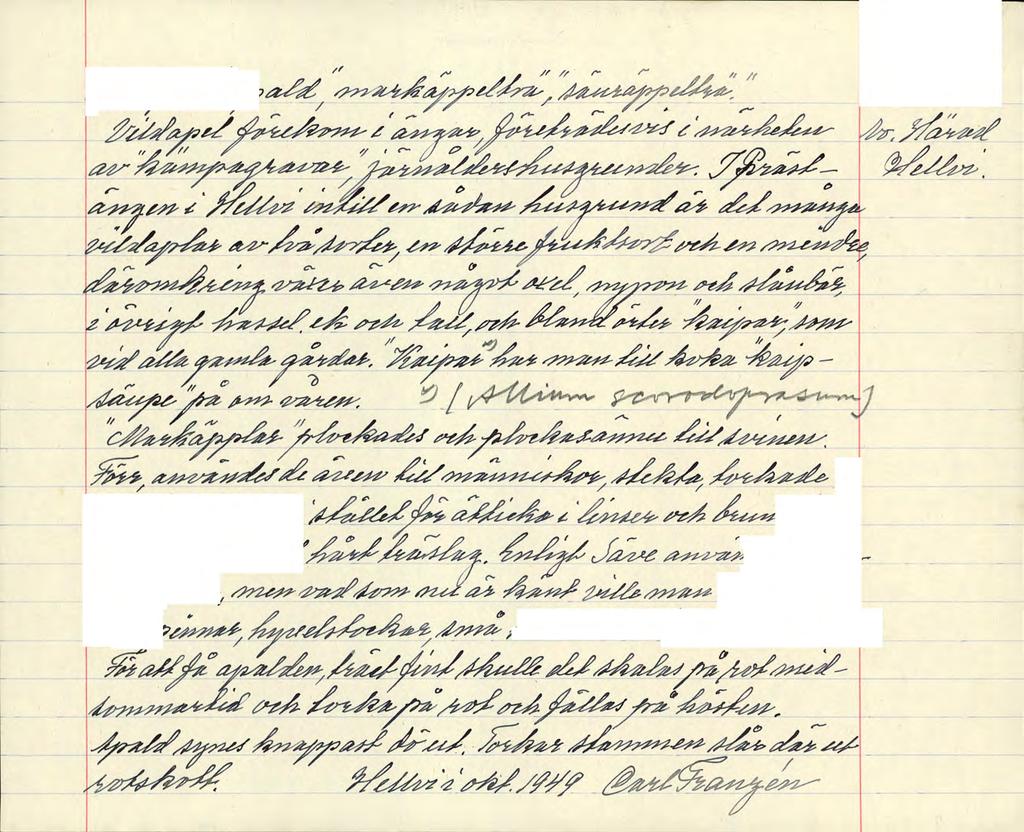 ald", "markäppelträ", "säuräppelträ."
Vildapel förekom i ängar, företrädesvis i närheten
av "kämpagravar", järnåldershusgrunder. I Präst-
ängen i Hellvi intill en sådan husgrund är det många
vildaplar av två sorter, en större fruktsort och en mindre,
däromkring växer även något oxel, nypon och slånbär,
i övrigt hassel, ek och tall, och bland örter "kaipar", som
vid alla gamla gårdar. "Kaipar" x) har man till koka "kaip-
säupe" på om våren. x) (Allium scorodoprasum)
"Markäpplar" plockades och plockas ännu till svinen.
Förr, användes de även till människor, stekta, torkade
i stället för ätticka i linser och brun
hårt träslag. Enligt Säve använ
, men vad som nu är känt ville man
pinnar, hyvelstockar, små
För att få apalden, träet fint skulle det skalas på rot mid-
sommartid och torka på rot och fällas på hösten.
Apald synes knappast dö ut. Torkar stammen slår där ut
rotskott. Hellvi i okt. 1949 Carl Franzén
No. Härad
Hellvi.